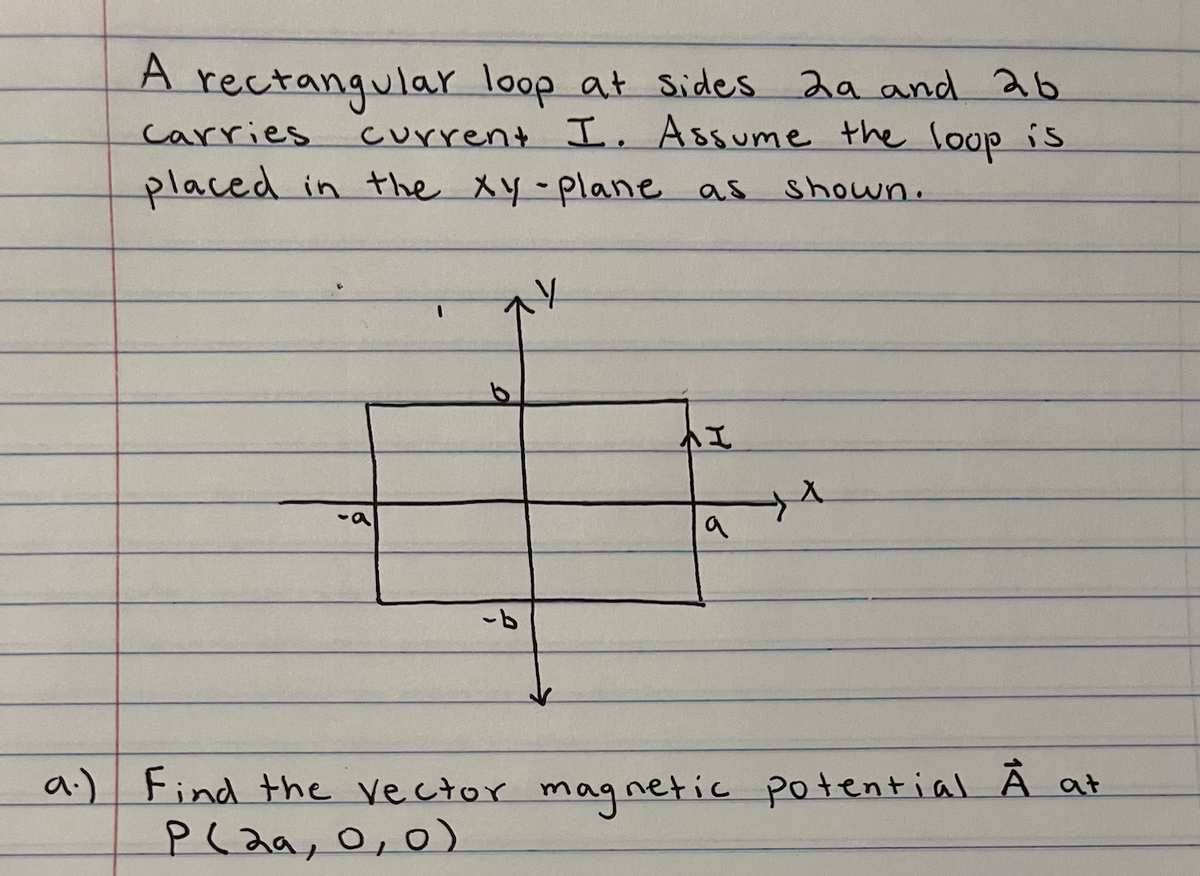 A rectangular loop at sides 2a and 2b
carries current I. Assume the loop is
placed in the xy-plane as shown.
y
b
I
x
-a
a
-b
a.) Find the vector magnetic potential A⃗ at
P(2a, 0, 0)